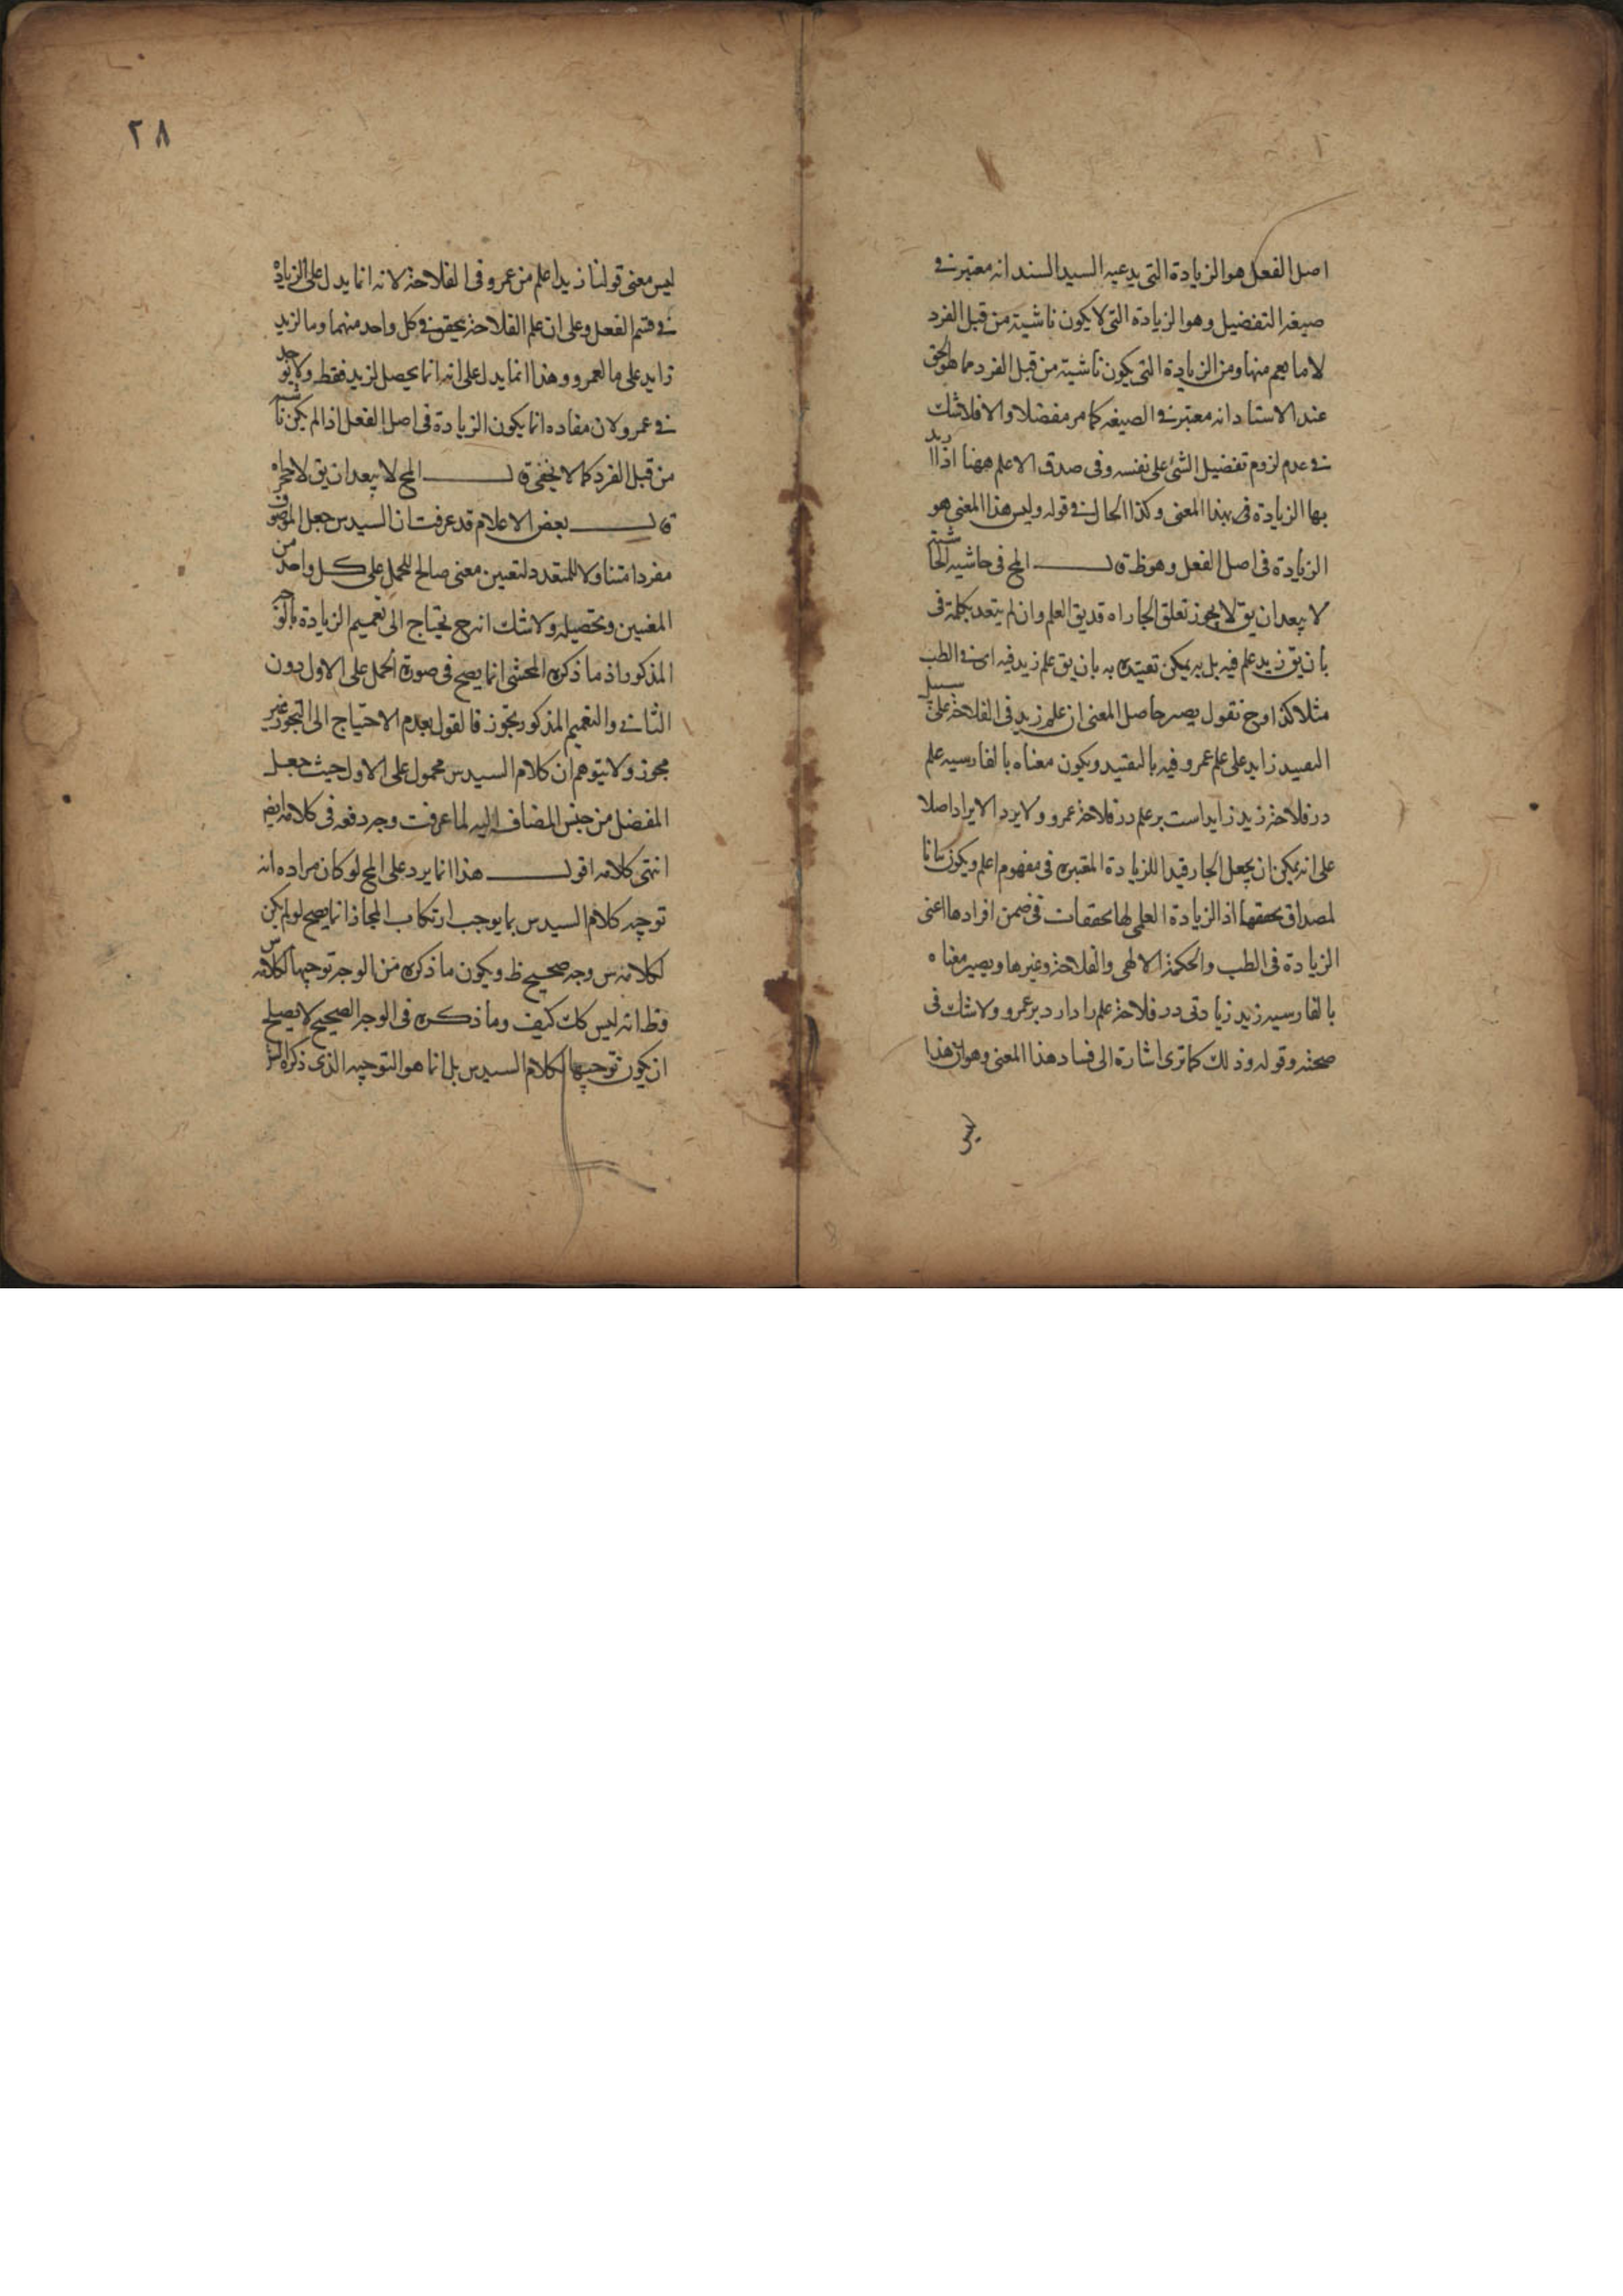 اصل الفعل هو الزيادة التى يدعيه السيد السند انه معتبر فى
صيغه التفضيل وهو الزيادة التى لا يكون ناشية من قبل الفرد
لا ما يعم منها ومن الزيادة التى يكون ناشية من قبل الفرد مما هو الحق
عند الاستاد انه معتبر فى الصيغه كما مر مفضلا والا فلا شك
فى عدم لزوم تفضيل الشئ على نفسه وفى صدق الاعلم ههنا اذا اريد
بها الزيادة فى بهذا المعنى وكذا الحال فى قوله وليس هذا المعنى هو
الزيادة فى اصل الفعل وهو ظ قال المح فى حاشيه الحاشية
لا يبعدان يق لا يجوز تعلق الجار اه قد يق العلم وان لم يتعد بكلمة فى
بان يق زيد علم فيه بل به يمكن تقيده به بان يق علم زيد فيه اى فى الطب
مثلا كذا وح نقول يصير حاصل المعنى ان علم زيد فى الفلاحة على سبيل
التقييد زايد على علم عمرو فيه بالتقييد ويكون معناه بالفارسيه علم
در فلاحة زيد زايد است بر علم در فلاحة عمرو ولا يرد الايراد اصلا
على انه يمكن ان يجعل الجار قيدا للزيادة المعتبره فى مفهوم اعلم ويكون بيانا
لمصداق تحققها اذ الزيادة العلمى لها تحققات فى ضمن افرادها اعنى
الزيادة فى الطب والحكمة الالهى والفلاحة وغيرها ويصير معناه
بالفارسيه زيد زيادتى در فلاحة علم را دارد بر عمرو ولا شك فى
صحته وقوله وذلك كما ترى اشارة الى فساد هذا المعنى وهو ان هذا
ليس
٢٨
ليس معنى قولنا زيد اعلم من عمرو فى الفلاحة لانه انما يدل على الزيادة
فى قسم الفعل وعلى ان علم الفلاحة يحقق فى كل واحد منهما وما لزيد
زايد على ما لعمرو وهذا انما يدل على انه انما يحصل لزيد فقط ولا يوجد
فى عمرو ولان مفاده انما يكون الزيادة فى اصل الفعل اذا لم يكن ناشية
من قبل الفرد كما لا يخفى قال المح لا يبعدان يق لا حاجة
قال بعض الاعلام قد عرفت ان السيد س جعل الموصوف
مفردا متناولا للمتعدد لتعيين معنى صالح للحمل على كل واحد من
المعنيين وتحصيله ولا شك انه ح يحتاج الى تعميم الزيادة بالوجه
المذكور اذ ما ذكره المحشى انما يصح فى صورة الحمل على الاول دون
الثانى والتعميم المذكور تجوز فالقول بعدم الاحتياج الى التجوز غير
مجوز ولا يتوهم ان كلام السيد س محمول على الاول حيث جعل
المفضل من جنس المضاف اليه لما عرفت وجه دفعه فى كلامه ايض
انتهى كلامه اقول هذا انما يرد على المح لو كان مراده انه
توجيه كلام السيد س بما يوجب ارتكاب المجاز انما يصح لو لم يكن
لكلامه س وجه صحيح ظ ويكون ما ذكره من الوجه توجيها لكلامه س
فظ انه ليس كك كيف وما ذكره فى الوجه الصحيح لا يصلح
ان يكون توجيها لكلام السيد س بل انما هو التوجيه الذى ذكره